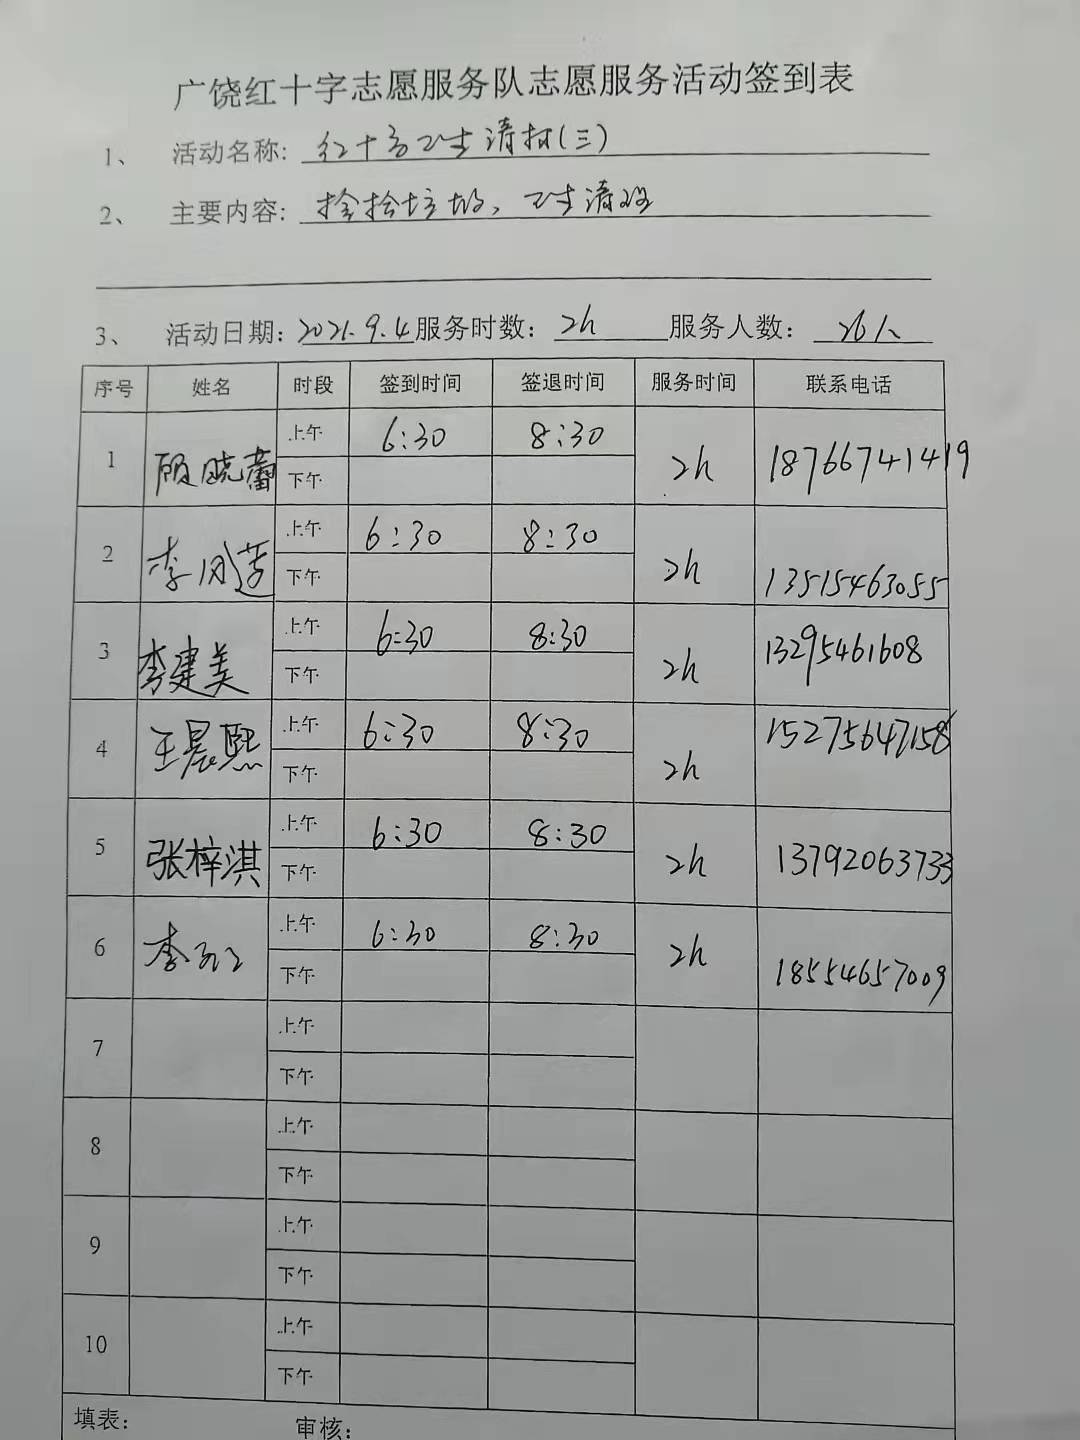 广饶红十字志愿服务队志愿服务活动签到表
1、 活动名称: 红十字卫生清村(三)
2、 主要内容: 捡拾垃圾，卫生清理
3、 活动日期: 2021.9.4 服务时数: 2h 服务人数: 26人
序号 姓名 时段 签到时间 签退时间 服务时间 联系电话
1 顾晓蕾 上午 6:30 8:30 2h 18766741419
下午
2 李 上午 6:30 8:30 2h 13515463055
下午
3 李建美 上午 6:30 8:30 2h 13295461608
下午
4 王晨熙 上午 6:30 8:30 2h 15275647158
下午
5 张梓淇 上午 6:30 8:30 2h 13792063733
下午
6 李 上午 6:30 8:30 2h 18554657009
下午
7 上午
下午
8 上午
下午
9 上午
下午
10 上午
下午
填表: 审核: